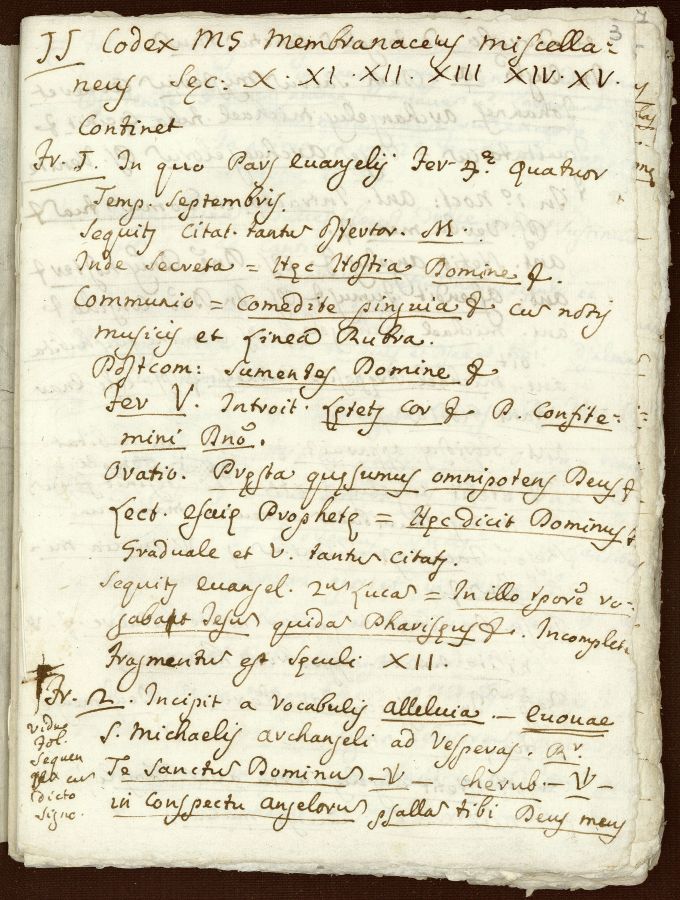 3
II Codex MS Membranaceus Miscella=
neus Sęc: X. XI. XII. XIII XIV. XV.
Continet
Fr. I. In quo Pars Evangelij Fer. 4.ª quatuor
Temp. Septembris.
Sequitʒ Citat. tantũ Offertor. M.
Inde Secreta = Hęc Hostia Domine &.
Communio = Comedite pinguia &. cũ notis
musicis et Linea Rubra.
Postcom: Sumentes Domine &
Fer V. Introit. Lętetʒ Cor & P. Confite=
mini Dnõ.
Oratio. Pręsta quęsumus omnipotens Deus &
Lect. Esaię Prophetę = Hęc dicit Dominus &
Graduale et V. tantũ Citatʒ.
Sequitʒ Evangel. 2ũ Lucã = In illo tpore ro-
gabat Iesũ quidã Pharisęus &. Incompletũ
Fragmentũ est Sęculi XII.
Fr. 2. Incipit a vocabulis alleluia — Evovae
S. Michaelis Archangeli ad Vesperas. Rr.
Te Sanctũ Dominũ — V — Cherub. — V —
in Conspectu Angelorũ psallã tibi Deus meus
vide
Fol.
Sequen
cũ
dicto
Signo.